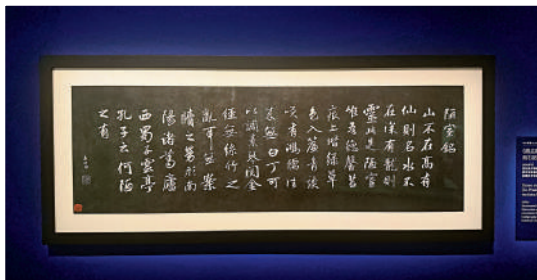 陋室銘
山不在高有
仙則名水不
在深有龍則
靈斯是陋室
惟吾德馨苔
痕上階綠草
色入簾青談
笑有鴻儒往
來無白丁可
以調素琴閱金
經無絲竹之
亂耳無案
牘之勞形南
陽諸葛廬
西蜀子雲亭
孔子云何陋
之有